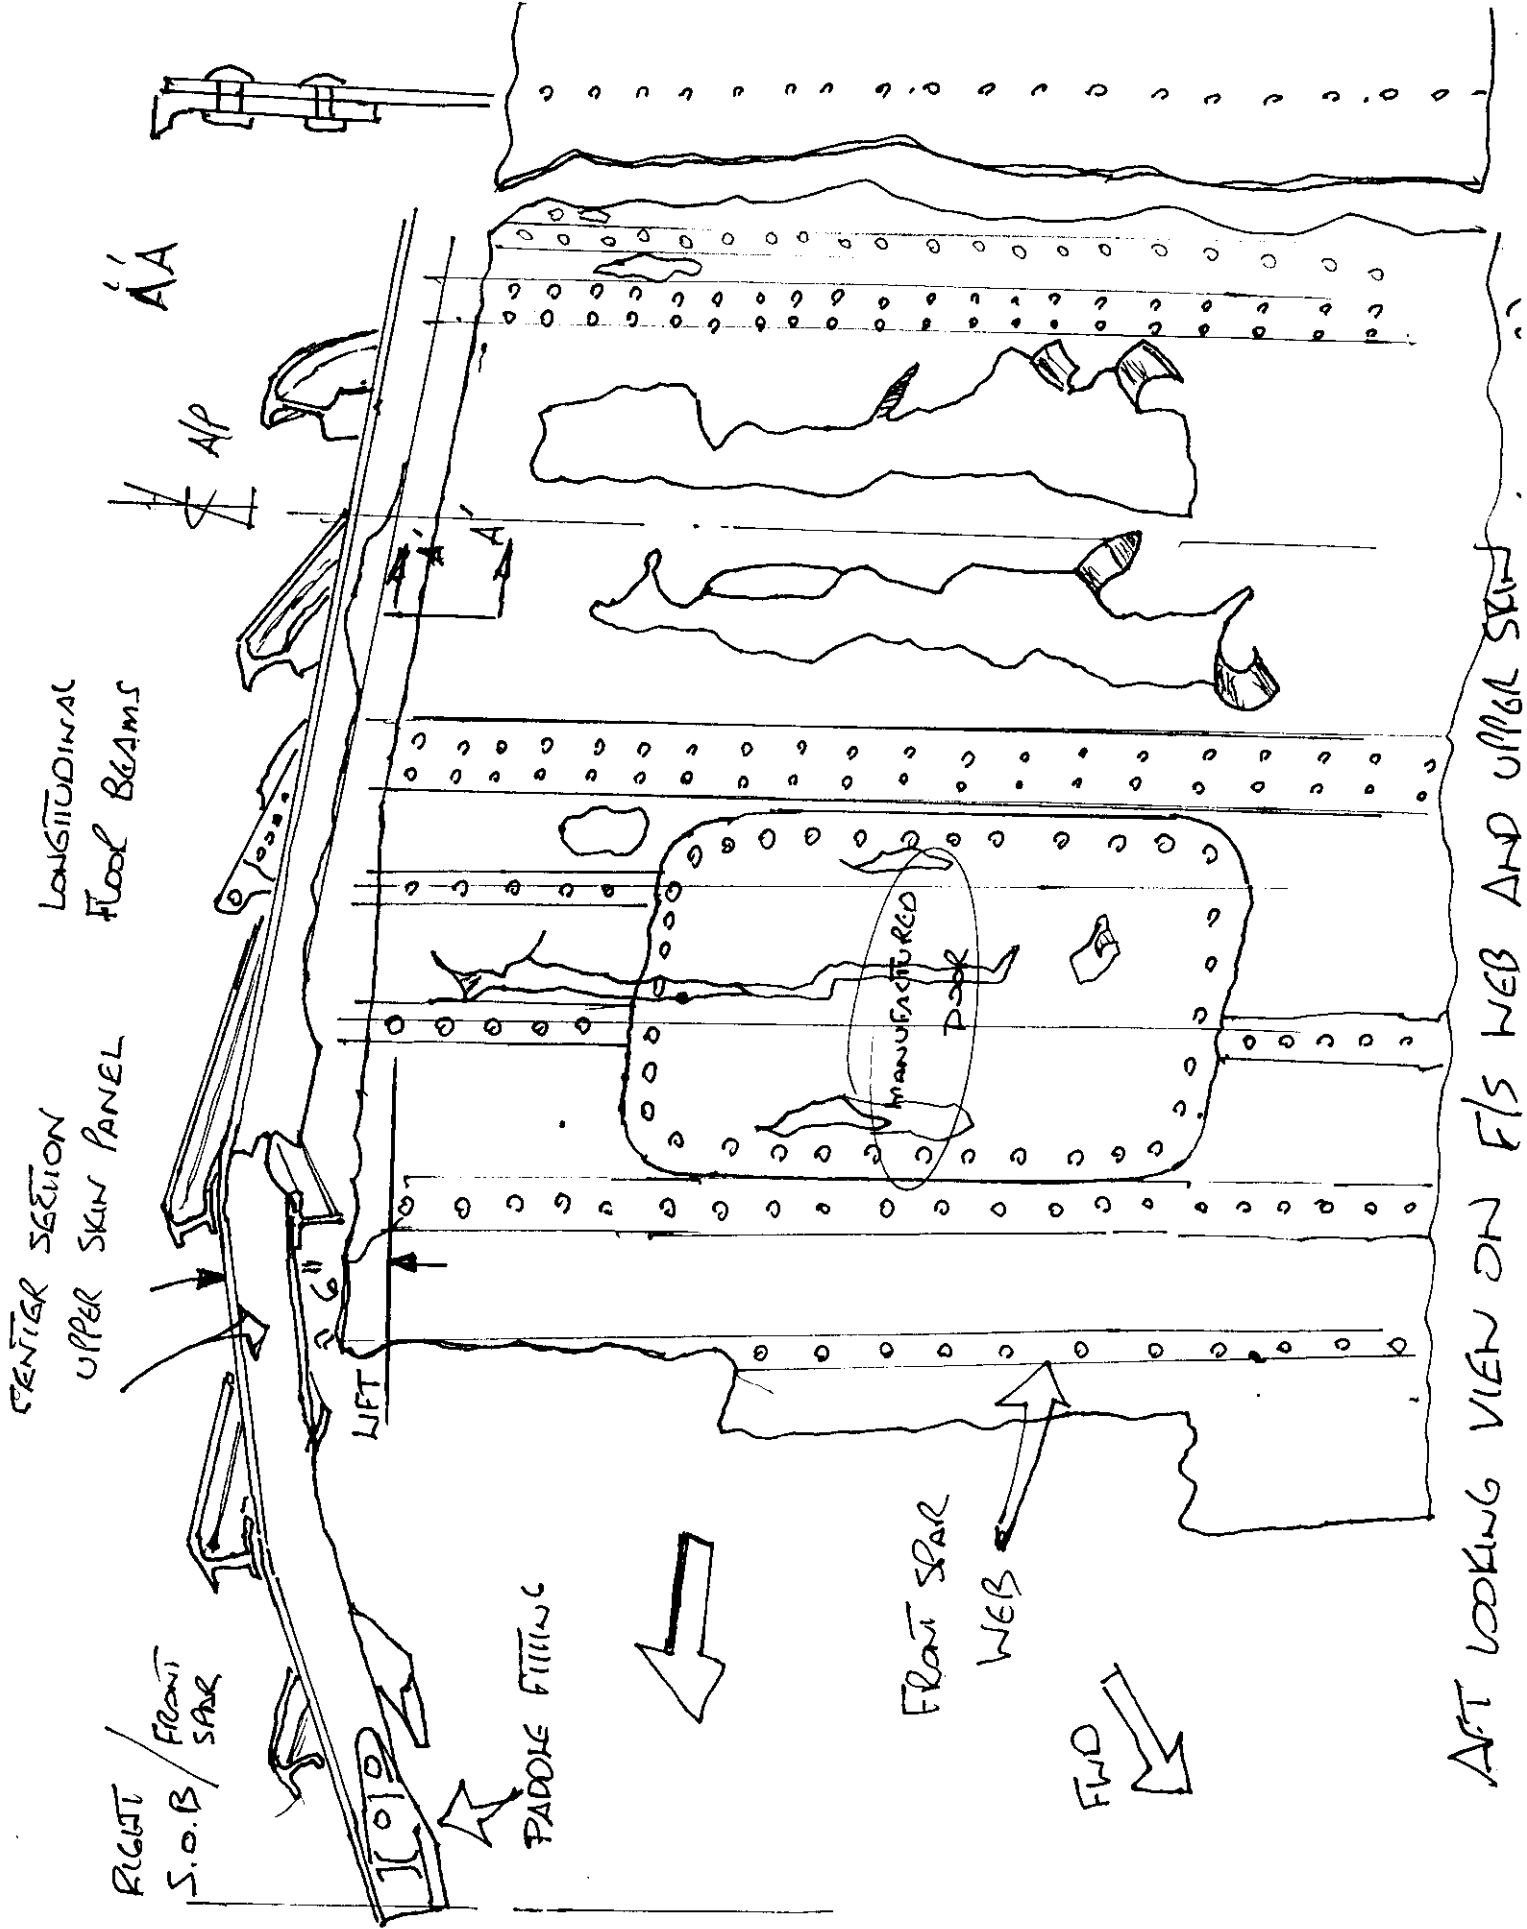 RIGHT
S.O.B / FRONT
SPAR
CENTER SECTION
UPPER SKIN PANEL
LONGITUDINAL
FLOOR BEAMS
A/P
A'A'
A'
A'
≈ 6"
LIFT
PADDLE FITTING
MANUFACTURED
DOOR
FRONT SPAR
WEB
FWD
AFT LOOKING VIEW ON F/S WEB AND UPPER SKIN